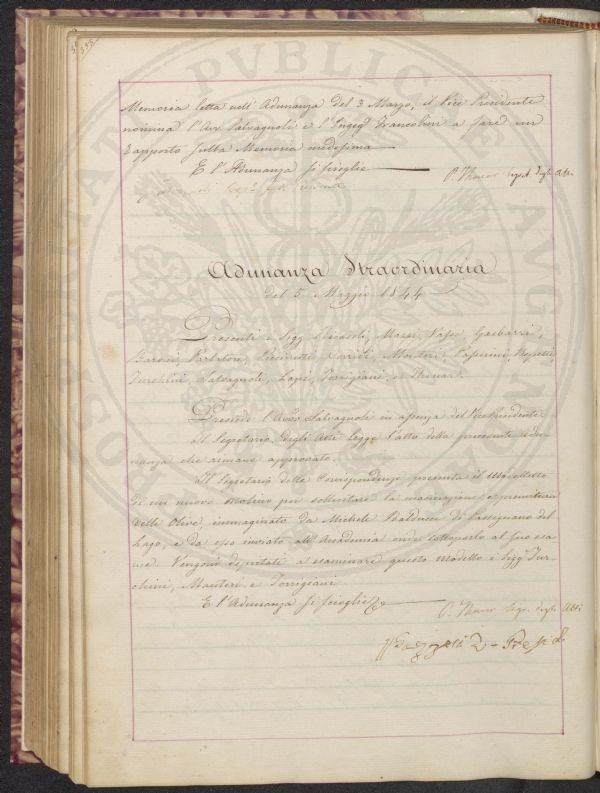 Memoria letta nell' Adunanza del 3 Marzo, il Vice Presidente
nomina l'Avv Salvagnoli e l'Ingeg Francolini a fare un
rapporto sulla Memoria medesima
E l'Adunanza si scioglie
P. Thouar Segret. degli Atti
Adunanza Straordinaria
del 5 Maggio 1844
Presenti i Sigg Ricasoli, Gasbarri,
Baroni, Parlatore, Passerini,
Turchini, Salvagnoli, Lapi, Torrigiani, e Thouar.
Presiede l'Avvo Salvagnoli in assenza del Vice Presidente
Il Segretario degli Atti legge l'atto della precedente Adu-
nanza che rimane approvato.
Il Segretario delle Corrispondenze presenta il modelletto
di un nuovo molino per sollecitare la macinazione, e premitura
delle Olive, immaginato da Michele Balducci di Passignano del
Lago, e da esso inviato all'Accademia onde sottoporlo al suo esa
me. Vengono deputati a esaminare questo modello i Sigg Tur-
chini, Manteri e Torrigiani.
E l'Adunanza si scioglie
P. Thouar Segr. degli Atti